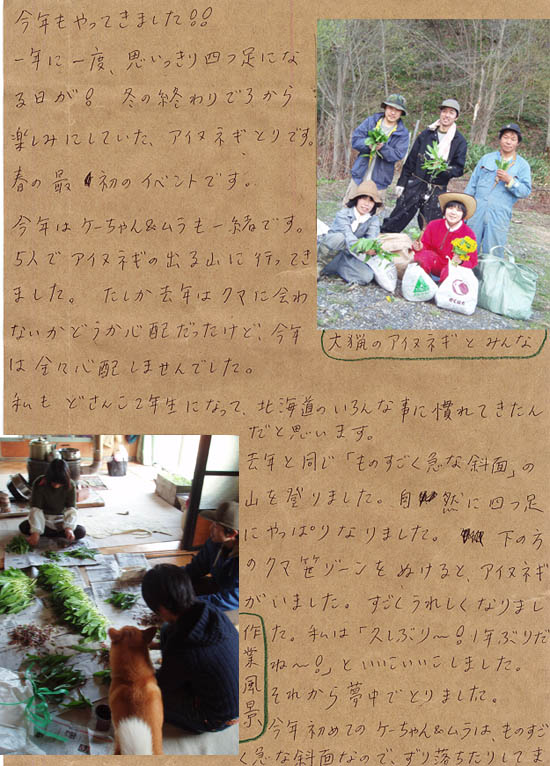 今年もやってきました!!
一年に一度、思いっきり四つ足にな
る日が! 冬の終わりごろから
楽しみにしていた、アイヌネギとりです。
春の最初のイベントです。
今年はケーちゃん&ムラも一緒です。
5人でアイヌネギの出る山に行ってき
ました。 たしか去年はクマに会わ
ないかどうか心配だったけど、今年
は全々心配しませんでした。
私も どさんこ2年生になって、北海道のいろんな事に慣れてきたん
だと思います。
去年と同じ「ものすごく急な斜面」の
山を登りました。自然に四つ足
にやっぱりなりました。 下の方
のクマ笹ゾーンをぬけると、アイヌネギ
がいました。すごくうれしくなりまし
た。私は「久しぶり〜!1年ぶりだ
ね〜!」といいこいいこしました。
それから夢中でとりました。
今年初めてのケーちゃん&ムラは、ものすご
く急な斜面なので、ずり落ちたりしてま
大猟のアイヌネギとみんな
作業風景